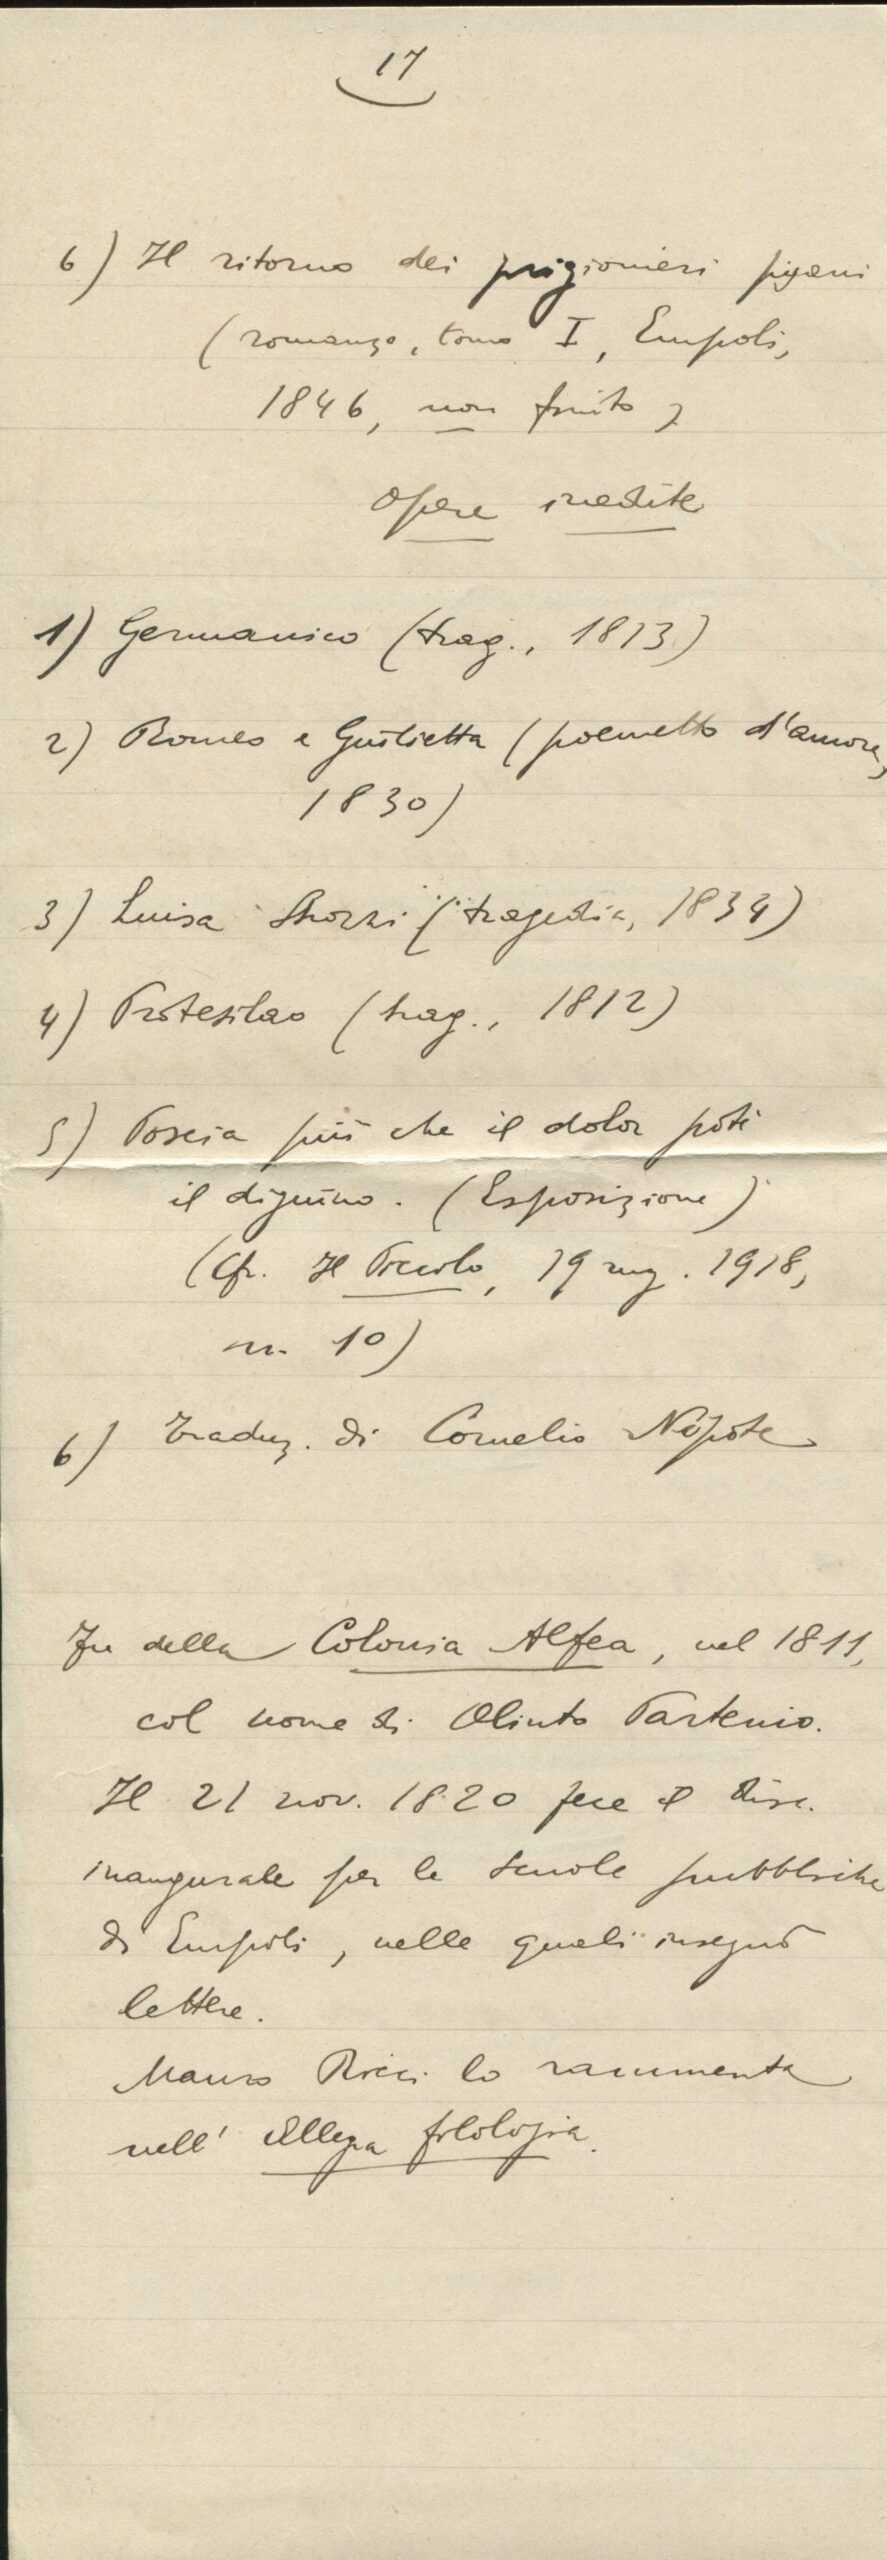 17
6) Il ritorno dei prigionieri pisani
(romanzo, tomo I, Empoli,
1846, non finito)
Opere inedite
1) Germanico (trag., 1813)
2) Romeo e Giulietta (poemetto d'amore,
1830)
3) Luisa Strozzi (tragedia, 1834)
4) Protesilao (trag., 1812)
5) Poscia più che il dolor potè
il digiuno. (Esposizione)
(Cfr. Il Piccolo, 19 mag. 1918,
nr. 10)
6) Traduz. di Cornelio Nepote
Fu della Colonia Alfea, nel 1811,
col nome di Olinto Partenio.
Il 21 nov. 1820 fece il disc.
inaugurale per le scuole pubbliche
di Empoli, nelle quali insegnò
lettere.
Mauro Ricci lo rammenta
nell' Allegra filologia.